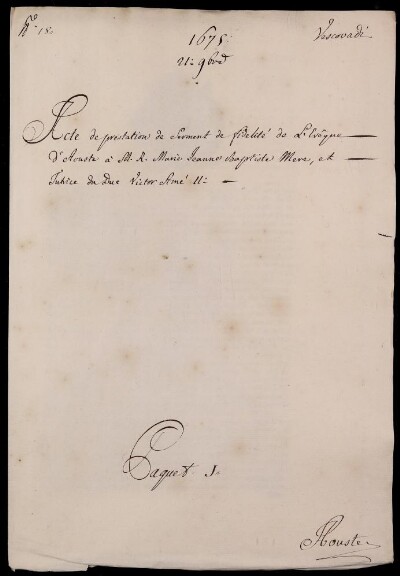 N.º 18.
1675
Vescovadi
21: 9bre
Acte de prestation de Serment de fidelité de L'Evêque
D'Aouste à M. R. Marie Jeanne Baptiste Mere, et
Tutrice du Duc Victor Amé II:
Paquet 1.
Aouste